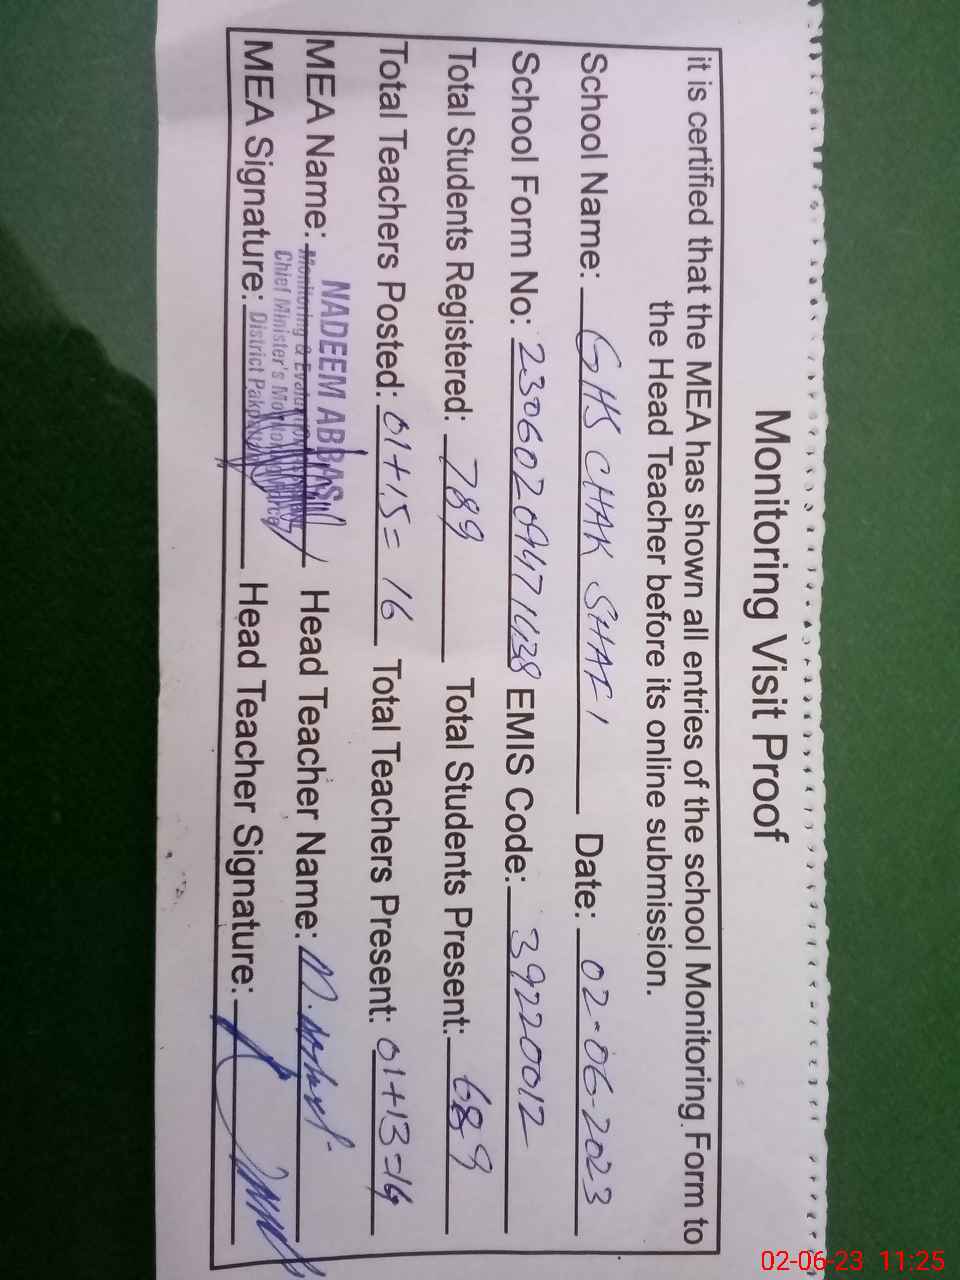 Monitoring Visit Proof
it is certified that the MEA has shown all entries of the school Monitoring Form to
the Head Teacher before its online submission.
School Name: GHS CHAK SHAFI Date: 02-06-2023
School Form No: EMIS Code: 39220012
Total Students Registered: 789 Total Students Present: 689
Total Teachers Posted: 01+15= 16 Total Teachers Present: 01+13=14
MEA Name: NADEEM ABBAS Head Teacher Name: M.
Monitoring &
Chief Minister's
MEA Signature: District Head Teacher Signature:
02-06-23 11:25